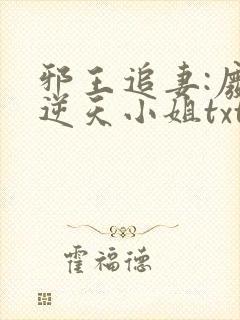 邪王追妻:废
逆天小姐txt
霍福德